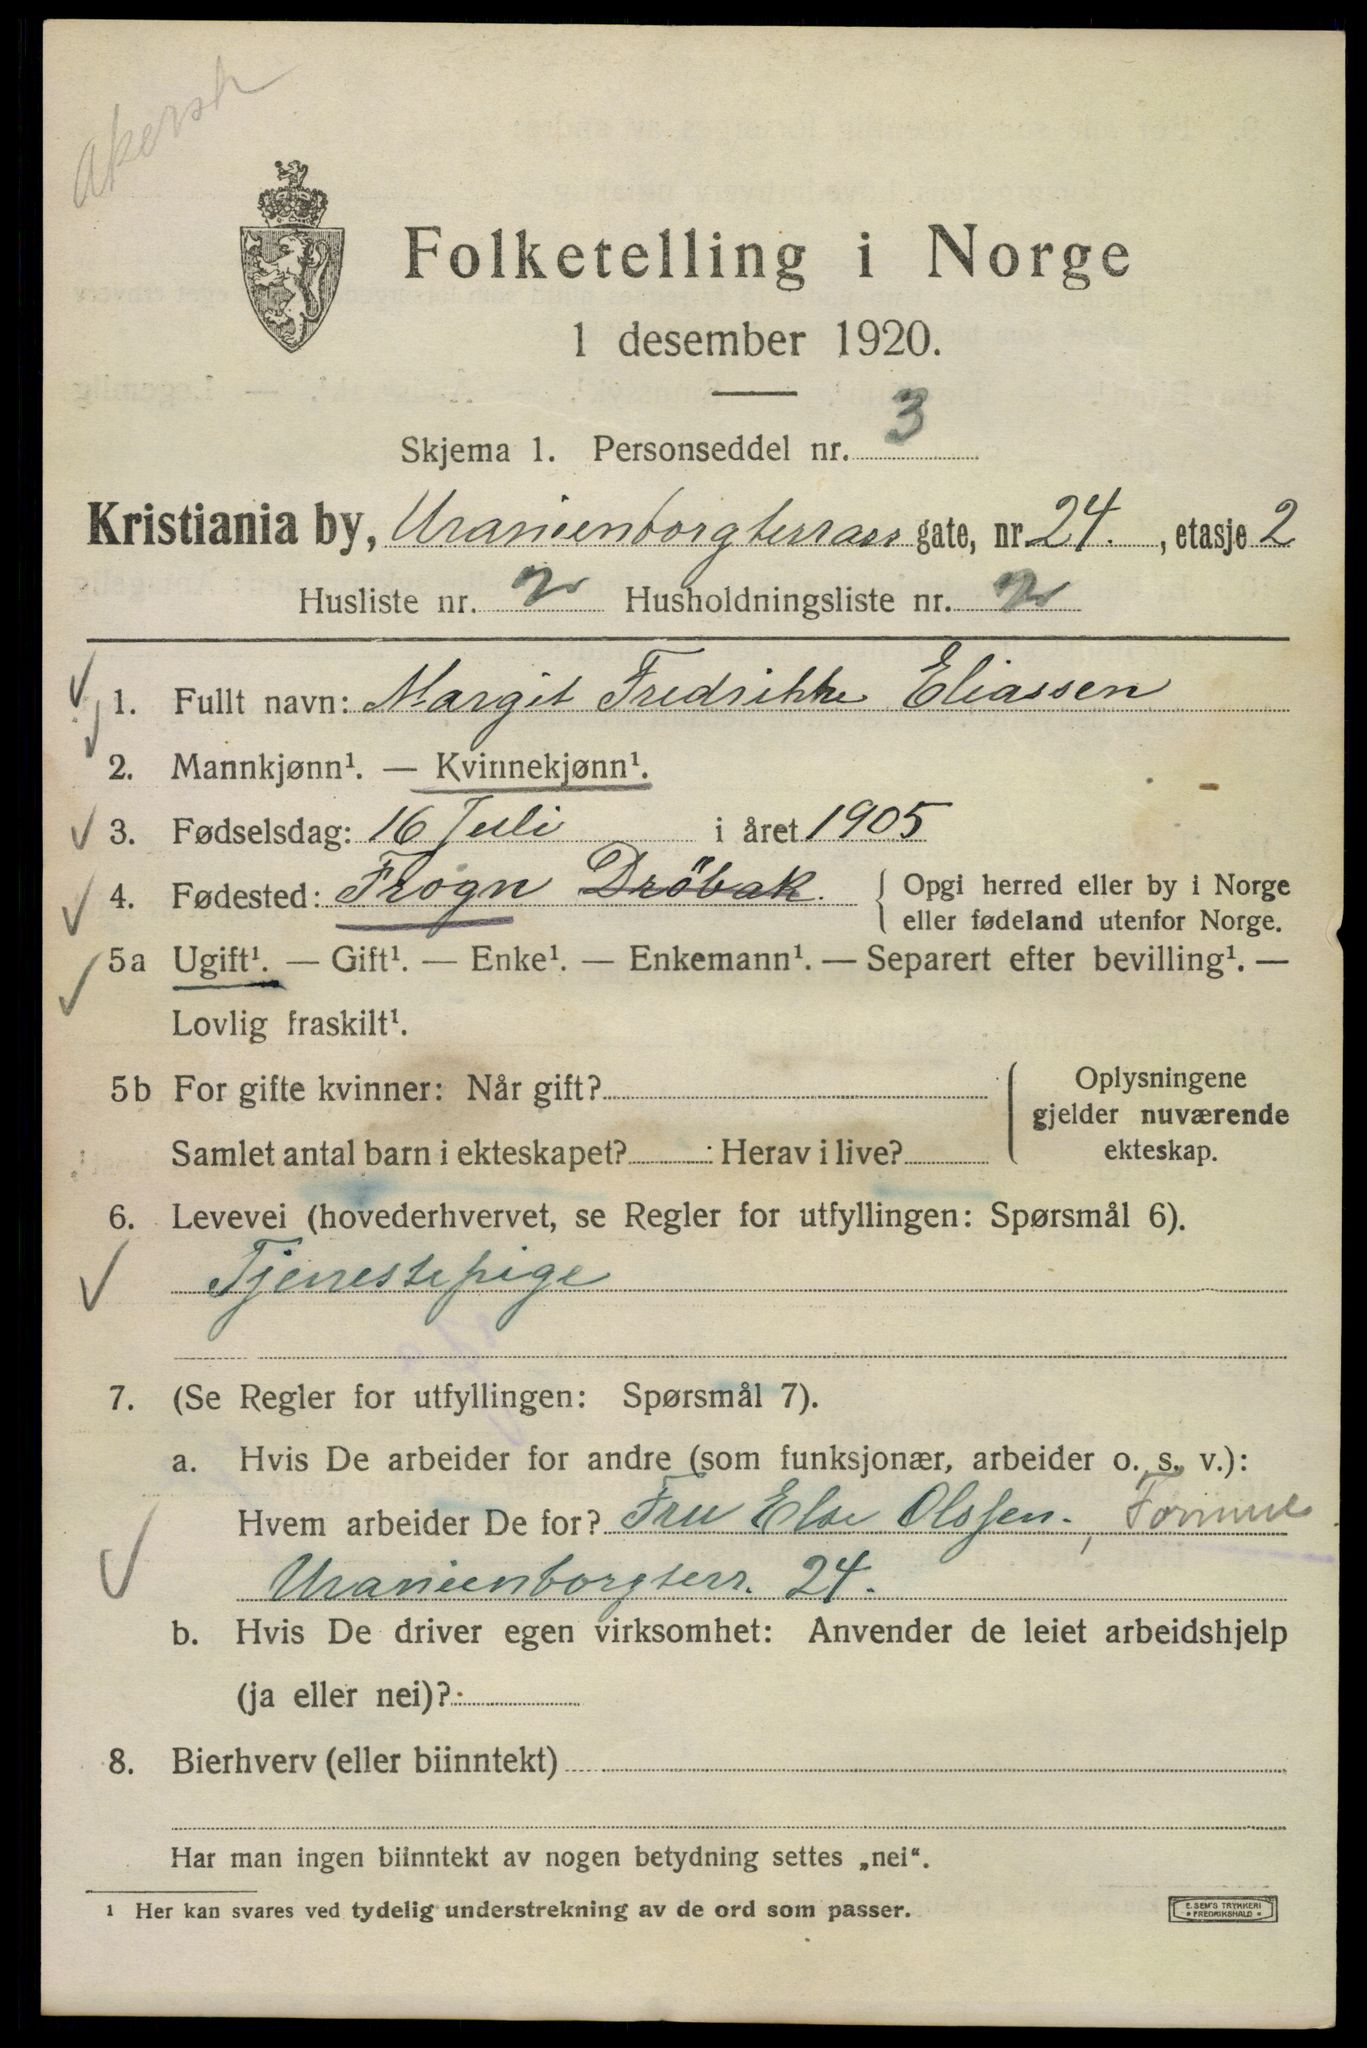 Akersh
Folketelling i Norge
1 desember 1920.
Skjema 1. Personseddel nr. 3
Kristiania by, Uranienborgterrass gate, nr 24. , etasje 2
Husliste nr. 2 Husholdningsliste nr. 2
1. Fullt navn: Margit Fredrikke Eliassen
2. Mannkjønn¹. — Kvinnekjønn¹.
3. Fødselsdag: 16 Juli i året 1905
4. Fødested: Frogn Dröbak. { Opgi herred eller by i Norge
eller fødeland utenfor Norge.
5a Ugift¹. — Gift¹. — Enke¹. — Enkemann¹. — Separert efter bevilling¹. —
Lovlig fraskilt¹.
5b For gifte kvinner: Når gift?
Samlet antal barn i ekteskapet? : Herav i live?
Oplysningene
gjelder nuværende
ekteskap.
6. Levevei (hovederhvervet, se Regler for utfyllingen: Spørsmål 6).
Tjenestepige
7. (Se Regler for utfyllingen: Spørsmål 7).
a. Hvis De arbeider for andre (som funksjonær, arbeider o. s. v.):
Hvem arbeider De for? Fru Else Olssen.,
Uranienborgterr. 24.
b. Hvis De driver egen virksomhet: Anvender de leiet arbeidshjelp
(ja eller nei)?
8. Bierhverv (eller biinntekt)
Har man ingen biinntekt av nogen betydning settes „nei“.
1 Her kan svares ved tydelig understrekning av de ord som passer.
E. SEM'S TRYKKERI
FREDRIKSHALD